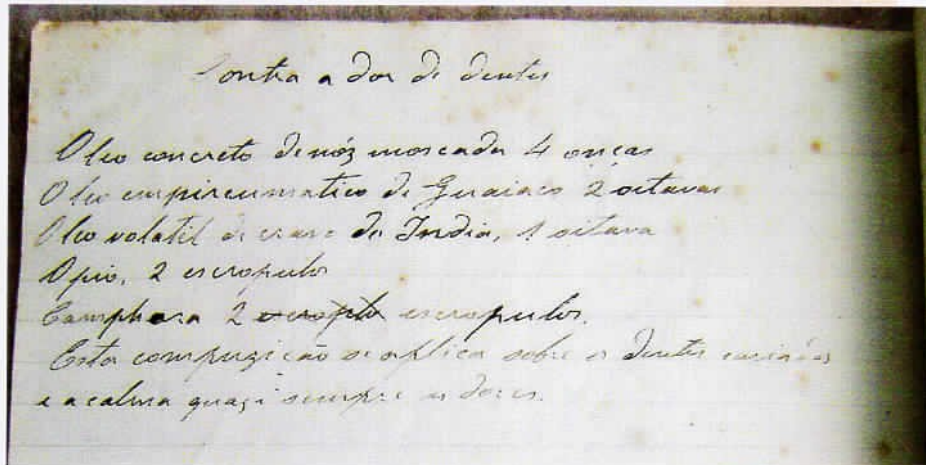 Contra a dor de dentes
Oleo concreto de nóz moscada 4 onças
Oleo empireumatico de Guaiaco 2 oitavas
Oleo volatil de cravo da India, 1 oitava
Opio, 2 escropulos
Camphora 2 escropulos.
Esta compuzição se aplica sobre os dentes cariados
e acalma quazi sempre as dores.